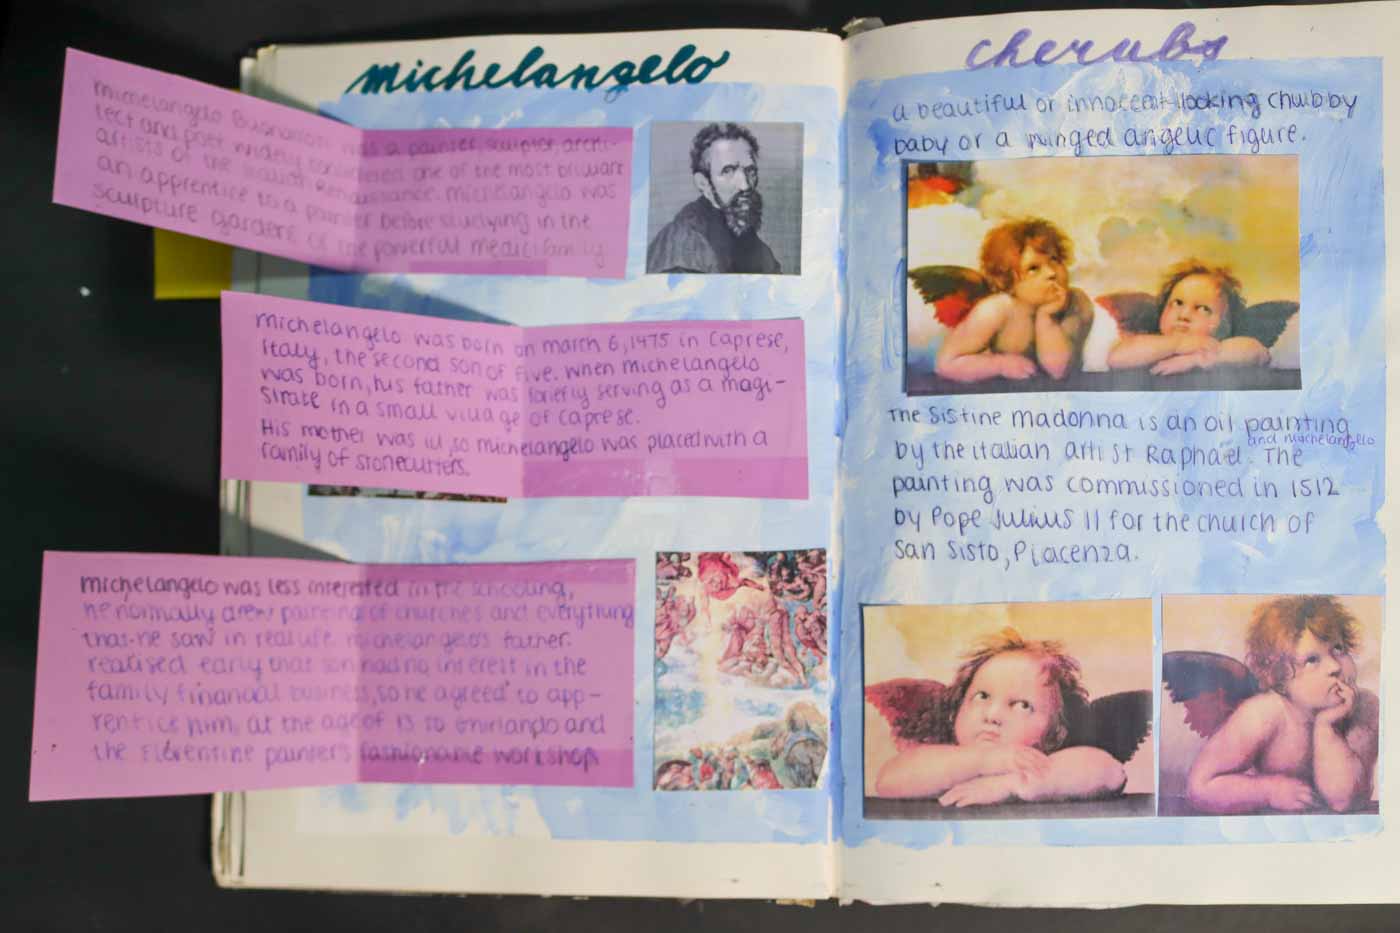 michelangelo
Michelangelo Buonarroti was a painter, sculpter, archi-
tect and poet widely considered one of the most brilliant
artists of the Italian Renaissance. Michelangelo was
an apprentice to a painter before studying in the
sculpture gardens of the powerful medici family
Michelangelo was born on march 6, 1475 in Caprese,
Italy, the second son of five. When michelangelo
was born, his father was briefly serving as a magi-
strate in a small village of Caprese.
His mother was ill, so michelangelo was placed with a
family of stonecutters.
Michelangelo was less interested in the schooling,
he normally drew painting of churches and everything
that he saw in real life. Michelangelo's father
realised early that son had no interest in the
family financial business, so he agreed to app-
rentice him, at the age of 13 to Ghirlando and
the Florentine painter's fashionable workshop
cherubs
a beautiful or innocent-looking chubby
baby or a winged angelic figure.
The Sistine Madonna is an oil painting
by the italian artist Raphael. The
and michelangelo
painting was commissioned in 1512
by Pope Julius II for the church of
San Sisto, Piacenza.